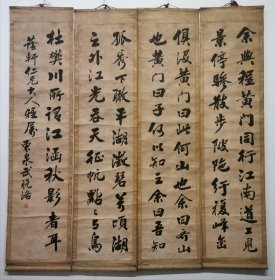 余与程黄门同行江南道上见
景停骖散步陂陁行复峰峦
俱没黄门曰此何山也余曰齐山
也黄门曰子何以知之余曰吾知
孤秀下瞰平湖澂碧万顷湖
之外江光吞天征帆点点与鸟
杜樊川所谓江涵秋影者耳
荫轩仁兄大人雅属